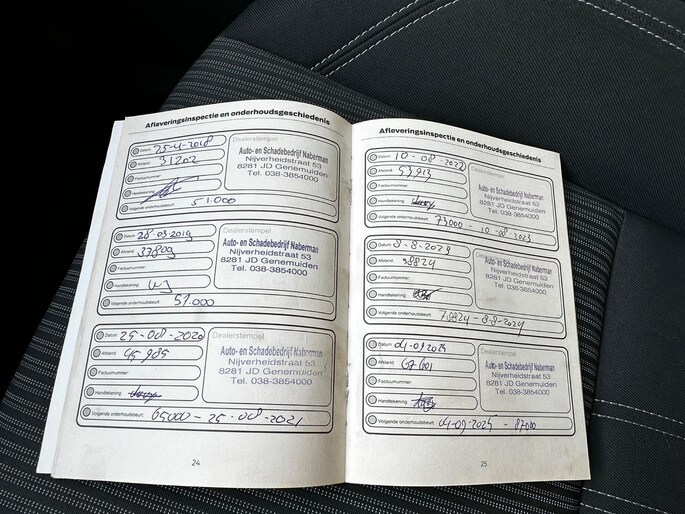 Afleveringsinspectie en onderhoudsgeschiedenis
Datum: 25-4-2018
Afstand: 31202
Factuurnummer:
Handtekening:
Volgende onderhoudsbeurt: 51.000
Dealerstempel
Auto- en Schadebedrijf Naberman
Nijverheidstraat 53
8281 JD Genemuiden
Tel. 038-3854000
Datum: 28-03-2019
Afstand: 37809
Factuurnummer:
Handtekening:
Volgende onderhoudsbeurt: 57.000
Dealerstempel
Auto- en Schadebedrijf Naberman
Nijverheidstraat 53
8281 JD Genemuiden
Tel. 038-3854000
Datum: 25-08-2020
Afstand: 45985
Factuurnummer:
Handtekening:
Volgende onderhoudsbeurt: 65000 - 25-08-2021
Dealerstempel
Auto- en Schadebedrijf Naberman
Nijverheidstraat 53
8281 JD Genemuiden
Tel. 038-3854000
24
Afleveringsinspectie en onderhoudsgeschiedenis
Datum: 10-08-2022
Afstand: 53913
Factuurnummer:
Handtekening:
Volgende onderhoudsbeurt: 73000 - 10-08-2023
Dealerstempel
Auto- en Schadebedrijf Naberman
Nijverheidstraat 53
8281 JD Genemuiden
Tel. 038-3854000
Datum: 8-8-2023
Afstand: 58824
Factuurnummer:
Handtekening:
Volgende onderhoudsbeurt: 78824 - 8-8-2024
Dealerstempel
Auto- en Schadebedrijf Naberman
Nijverheidstraat 53
8281 JD Genemuiden
Tel. 038-3854000
Datum:
Afstand: 67601
Factuurnummer:
Handtekening:
Volgende onderhoudsbeurt: 04-09-2025 -
Dealerstempel
Auto- en Schadebedrijf Naberman
Nijverheidstraat 53
8281 JD Genemuiden
Tel. 038-3854000
25